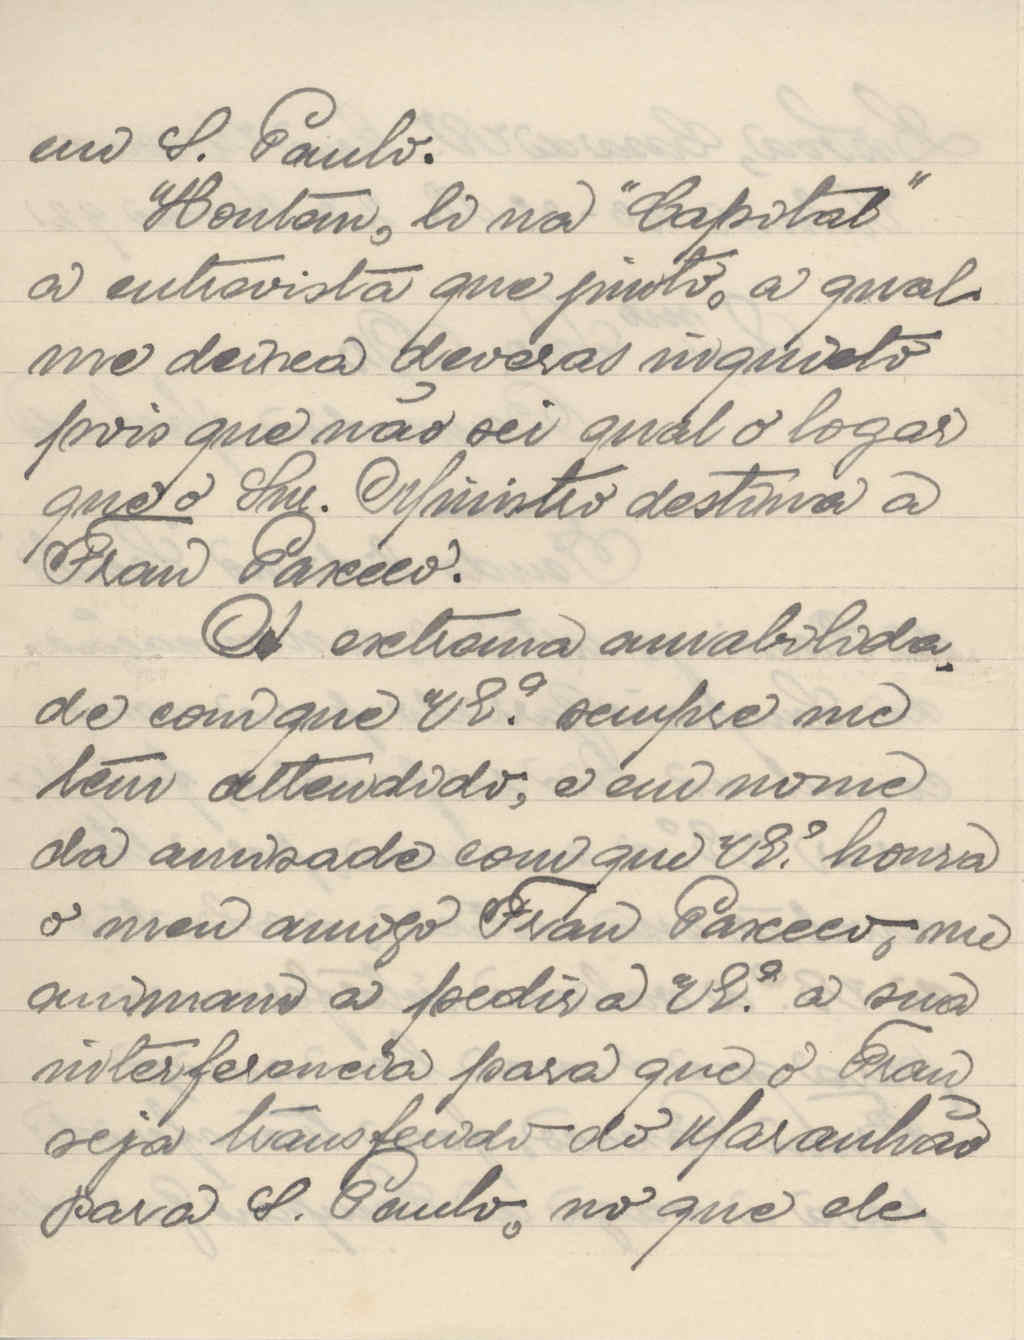 em S. Paulo.
Hontem, li na "Capital"
a entrevista que junto, a qual
me deixa deveras inquieto
pois que não sei qual o logar
que o Snr. Ministro destina a
Fran Paxeco.
A extrema amabilida-
de com que V. Ex.ª sempre me
tem attendido, e em nome
da amisade com que V. Ex.ª honra
o meu amigo Fran Paxeco, me
animam a pedir a V. Ex.ª a sua
interferencia para que o Fran
seja transferido do Maranhão
para S. Paulo, no que ele